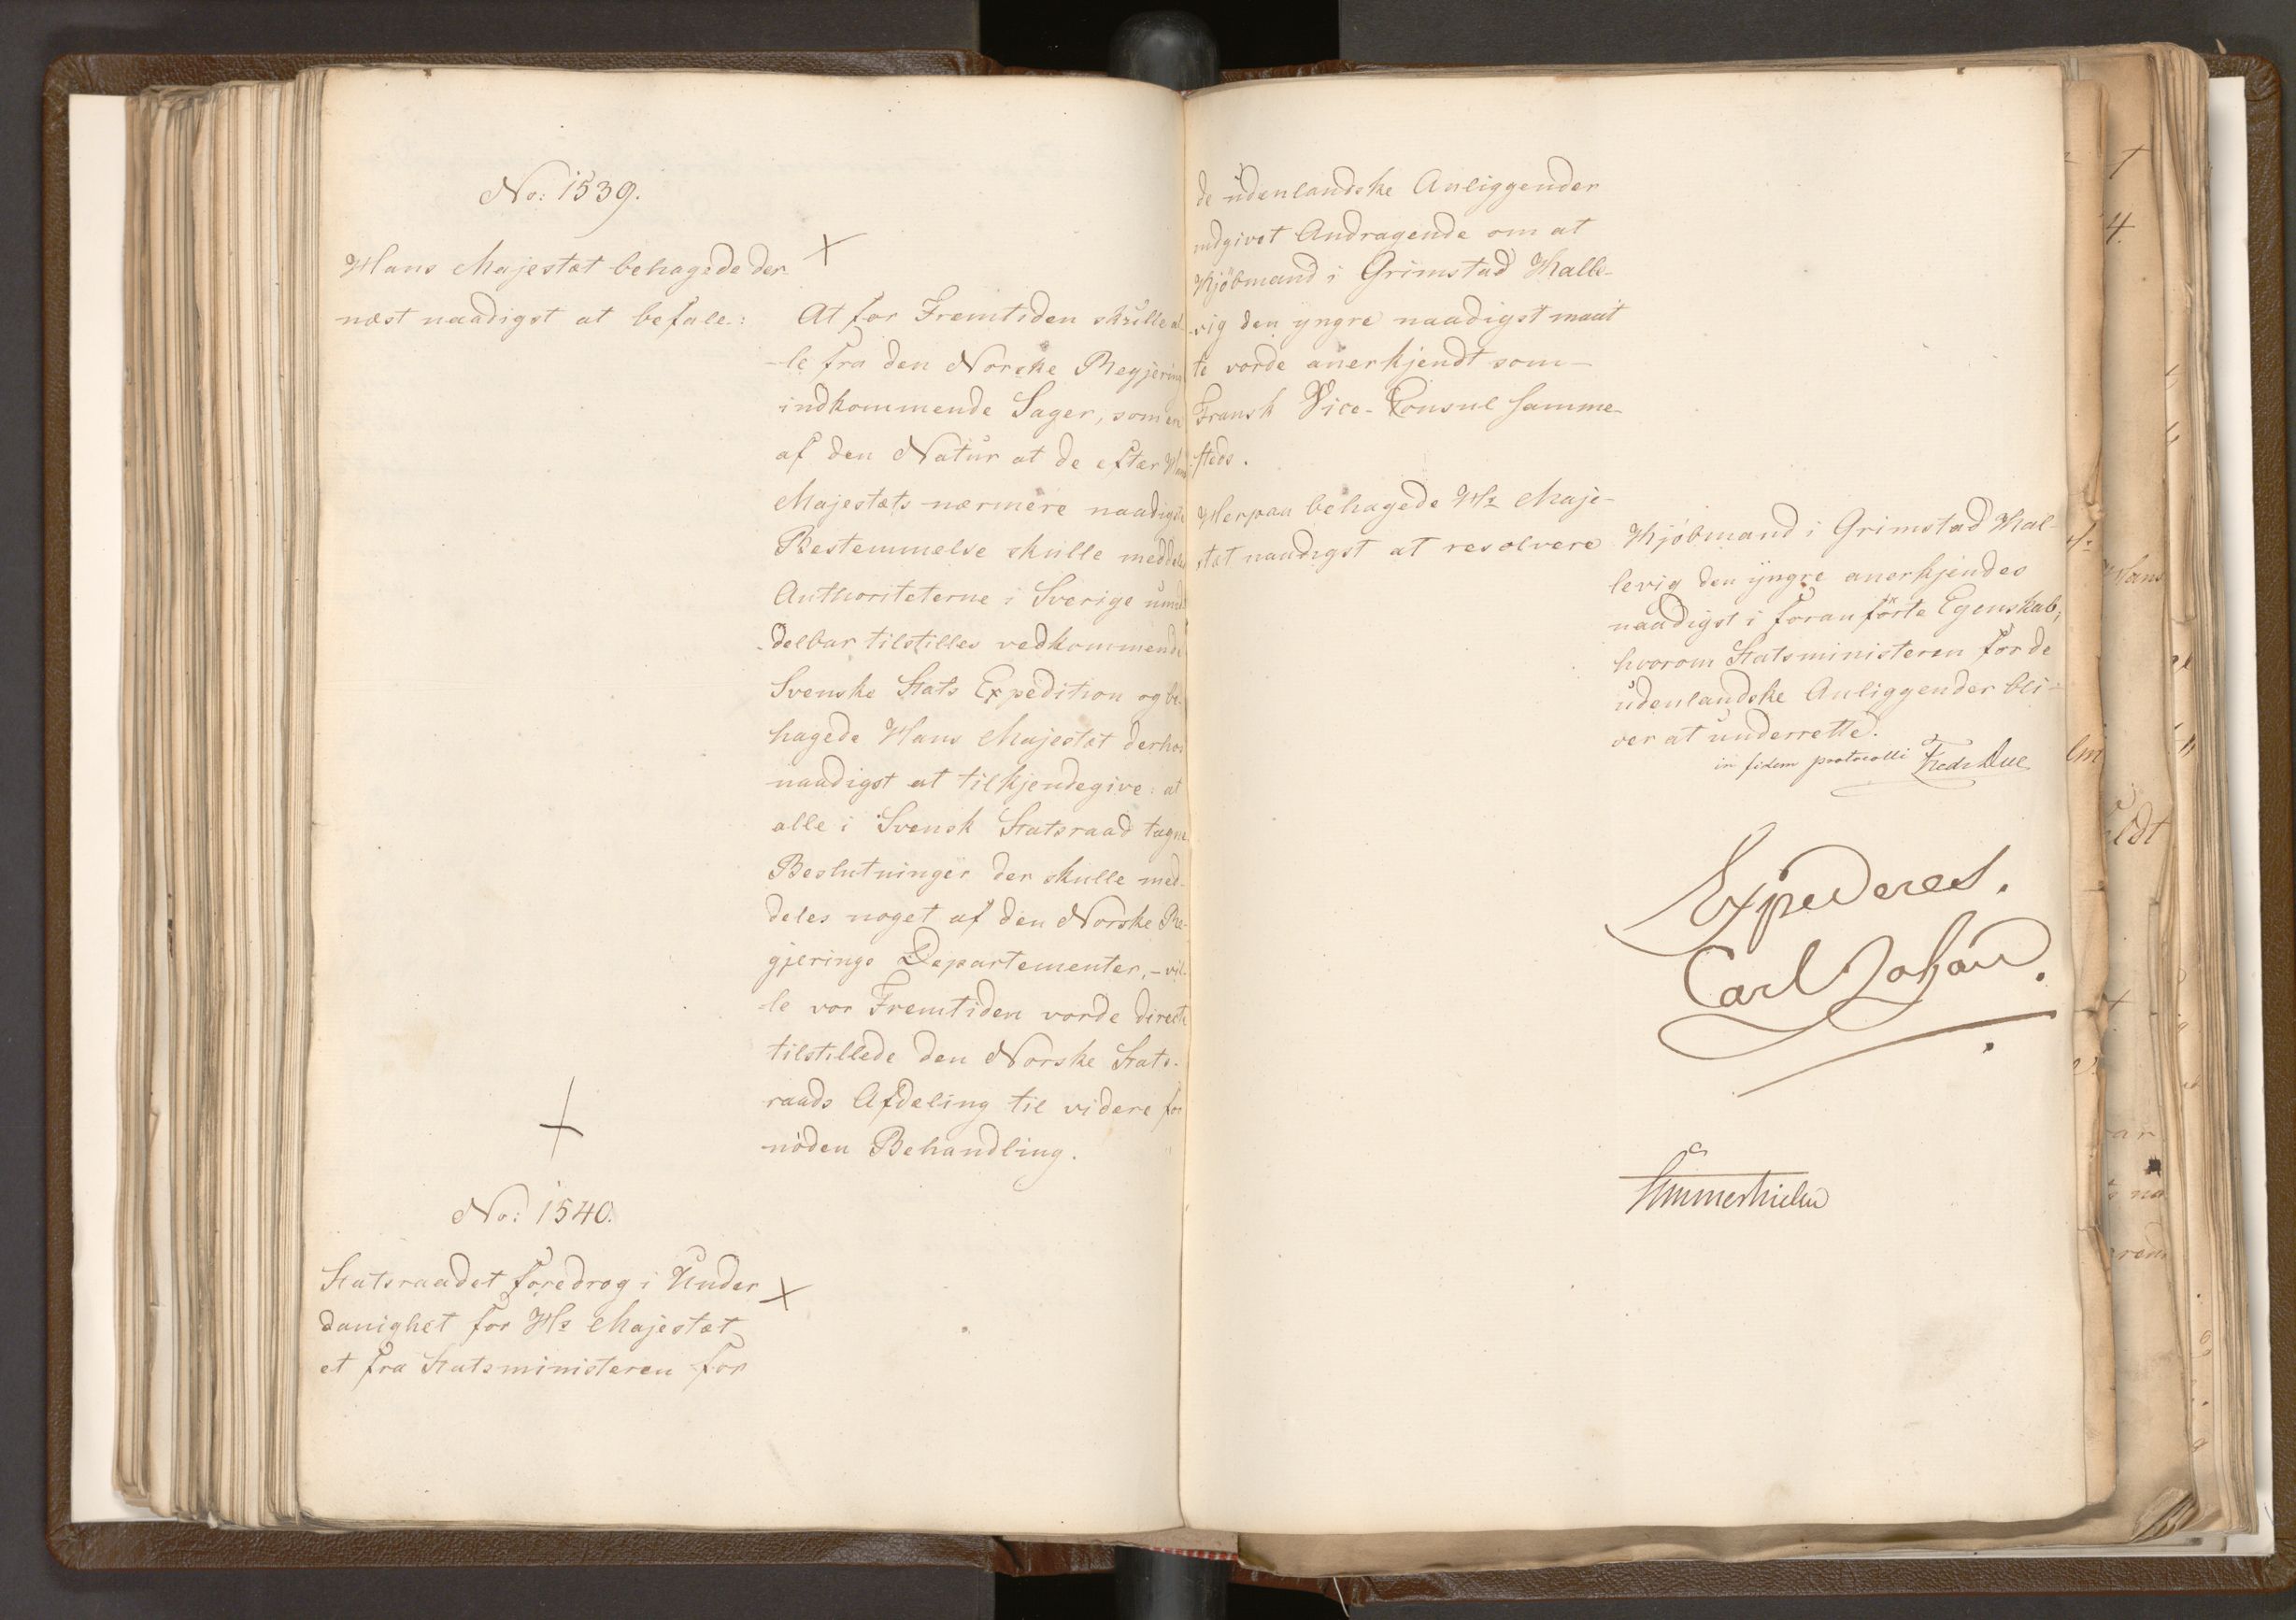 No: 1539.
Hans Majestæt behagede der
næst naadigst at befale:
At for Fremtiden skulle al
le fra den Norske Regjering
indkommende Sager, som ere
af den Natur at de efter Hans
Majestæts nærmere naadigste
Bestemmelse skulle meddeles
Authoriteterne i Sverige umid
delbar tilstilles vedkommende
Svenske Stats Expedition og be-
hagede Hans Majestæt derhos
naadigst at tilkjendegive: at
alle i Svensk Statsraad tagne
Beslutninger der skulle med-
deles noget af den Norske Re-
gjerings Departementer, - vil-
le vor Fremtiden vorde directe
tilstillede den Norske Stats-
raads Afdeling til videre for
nöden Behandling.
No: 1540.
Statsraadet foredrog i Under
danighet for Hs Majestæt
et fra Statsministeren for
de udenlandske Anliggender
indgivet Andragende om at
Kjöbmand i Grimstad Halle-
vig den yngre naadigst maat
te vorde anerkjendt som
Fransk Vice-Consul samme
steds.
Herpaa behagede Hs Maje-
stæt naadigst at resolvere
Kjöbmand i Grimstad Hal-
levig den yngre anerkjendes
naadigst i foranförte Egenskab,
hvorom Statsministeren for de
udenlandske Anliggender bli-
ver at underrette.
in fidem protocolli Fredr Due
Expederes.
Carl Johan.